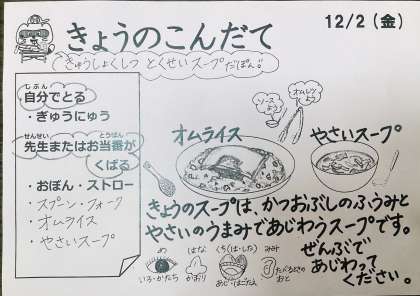 きょうのこんだて
12/2(金)
きゅうしょくしつ とくせいスープだぽん♪
じぶん
自分でとる
・ぎゅうにゅう
せんせい とうばん
先生またはお当番が
くばる
・おぼん・ストロー
・スプーン・フォーク
・オムライス
・やさいスープ
ソースよう
オムレツよう
オムライス
やさいスープ
きょうのスープは、かつおぶしのふうみと
やさいのうまみであじわうスープです。
ぜんぶで
あじわって
ください。
め
いろ・かたち
はな
かおり
くち(は・した)
あじ・はごたえ
みみ
たべるときのおと